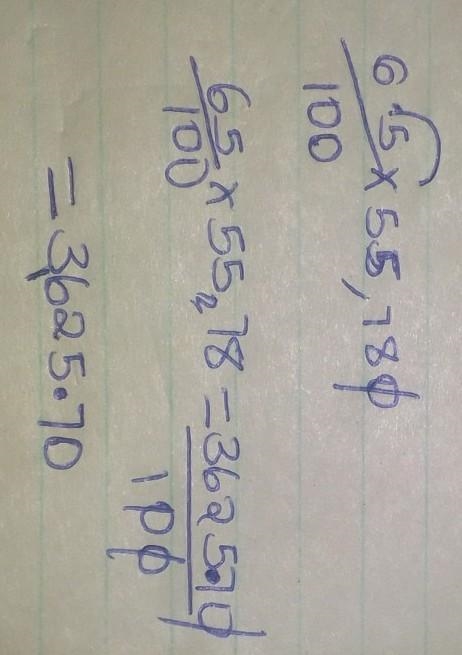 6.5/100 × 55,780
65/100 × 55,78 = 3625.70/100
= 3625.70